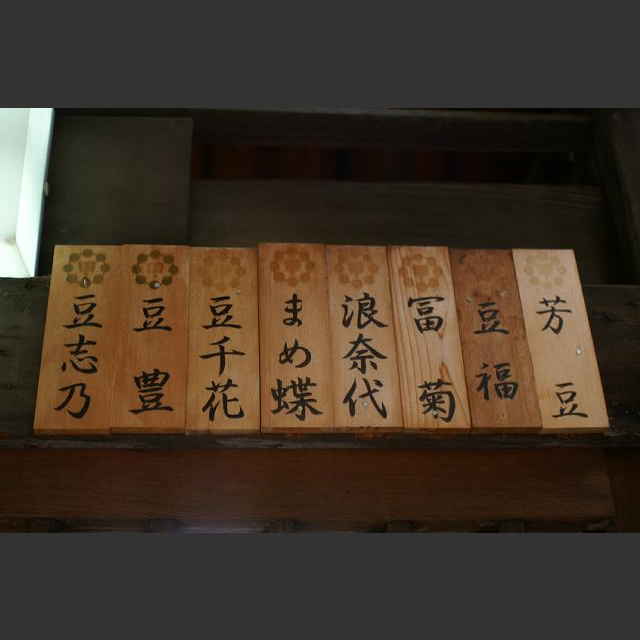 芳豆
豆福
冨菊
浪奈代
まめ蝶
豆千花
豆豊
豆志乃